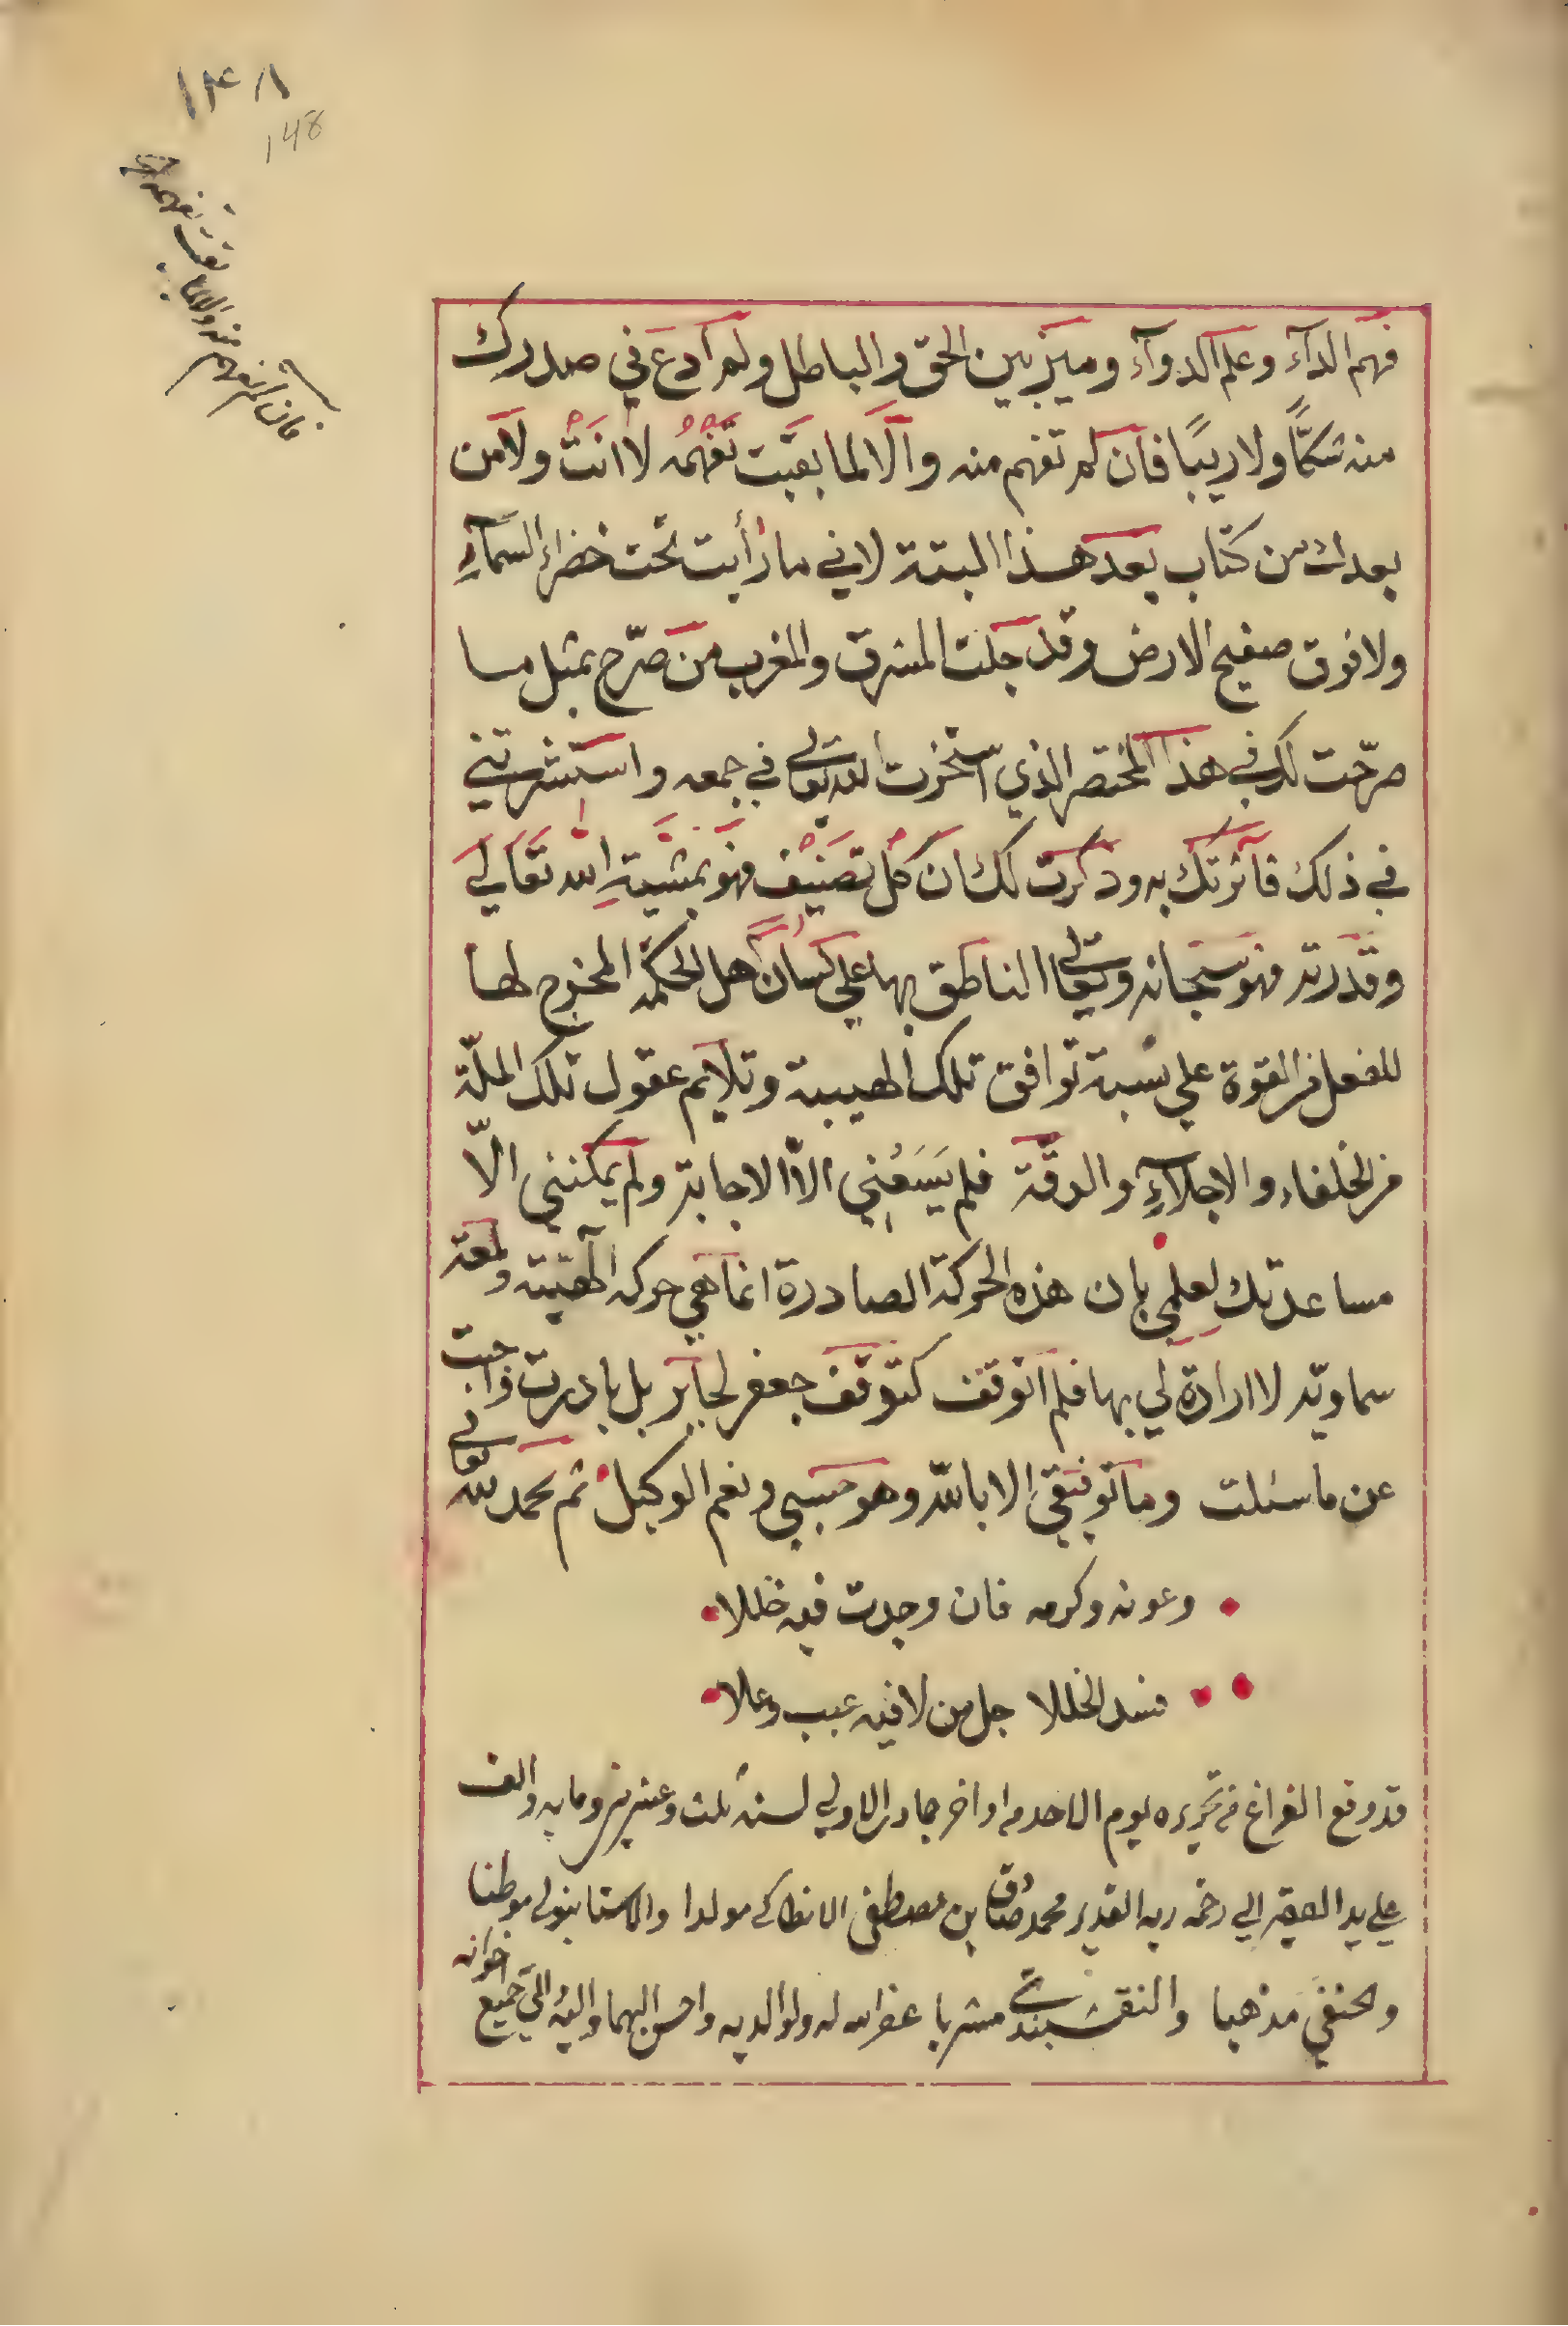 ١٤٨
148
فان لم تفهم منه والا لما بقيت تفهمه
فهم الدآء وعلم الدوآء وميز بين الحق والباطل ولم ادع في صدرك
منه شكًّا ولا ريبًا فان لم تفهم منه والّا لما بقيت تفهمه لا انت ولا من
بعدك من كتاب بعد هذا البتة لاني ما رأيت تحت خضراء السمآءِ
ولا فوق صفيح الارض وقد جلت المشرق والمغرب من صرّح بمثل ما
صرّحت لك في هذا المختصر الذي استخرت الله تعالى في جمعه واستشرتني
في ذلك فآثرتك به وذكرت لك ان كل تصنيف فهو بمشيةِ الله تعالي
وقدرته فهو سبحانه وتعالى الناطق بها علي لسان اهل الحكمة المخرج لها
للفعل من القوة علي نسبة توافق تلك الهيبة وتلايم عقول تلك الملّة
من الخلفاء والاجلآءِ والدقّة فلم يَسَعُني الّا الاجابة ولم يمكنني الّا
مساعدتك لعلمي بان هذه الحركة الصادرة انما هي حركه الٓهيّة ولمعة
سماويّة لا ارادة لي بها فلم اتوقف كتوقف جعفر لجابر بل بادرت واجبت
عن ما سئلت وما توفيقي الا بالله وهو حسبي ونعم الوكيل ثم بحمد لله تعالى
وعونه وكرمه فان وجدت فيه خللا
فسد الخللا جل من لا فيه عيب وعلا
قد وقع الفراغ من تحريره يوم الاحد من اواخر جمادى الاولي لسنة ثلث وعشرين ومايه والف
علي يد الفقير الي رحمة ربه القدير محمد صادق بن مصطفى الانطاكي مولدا والاستانبولي موطنا
والحنفي مذهبا والنقشبندي مشربا غفر الله له ولوالديه واحسن اليهما واليه الي جميع اخوانه